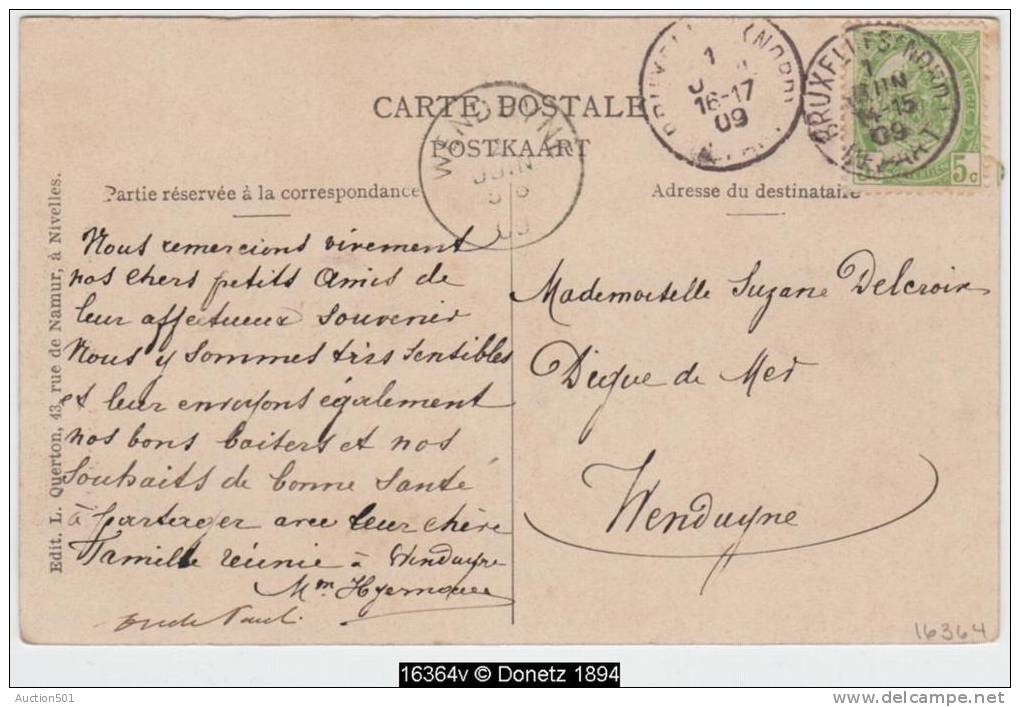 CARTE POSTALE
POSTKAART
BRUXELLES (NORD)
1
16-17
09
BRUXELLES (NORD)
1
JUIN
14-15
09
DEPART
5 c
WENDUYNE
JUIN
09
Partie réservée à la correspondance
Adresse du destinataire
Edit. L. Querton, 43, rue de Namur, à Nivelles.
Nous remercions vivement
nos chers petits amis de
leur affectueux souvenir
Nous y sommes très sensibles
et leur envoyons également
nos bons baisers et nos
souhaits de bonne santé
à partager avec leur chère
Famille réunie à Wenduyne
Mademoiselle Suzane Delcroix
Digue de Mer
Wenduyne
16364
16364v © Donetz 1894
Auction501
www.delcampe.net